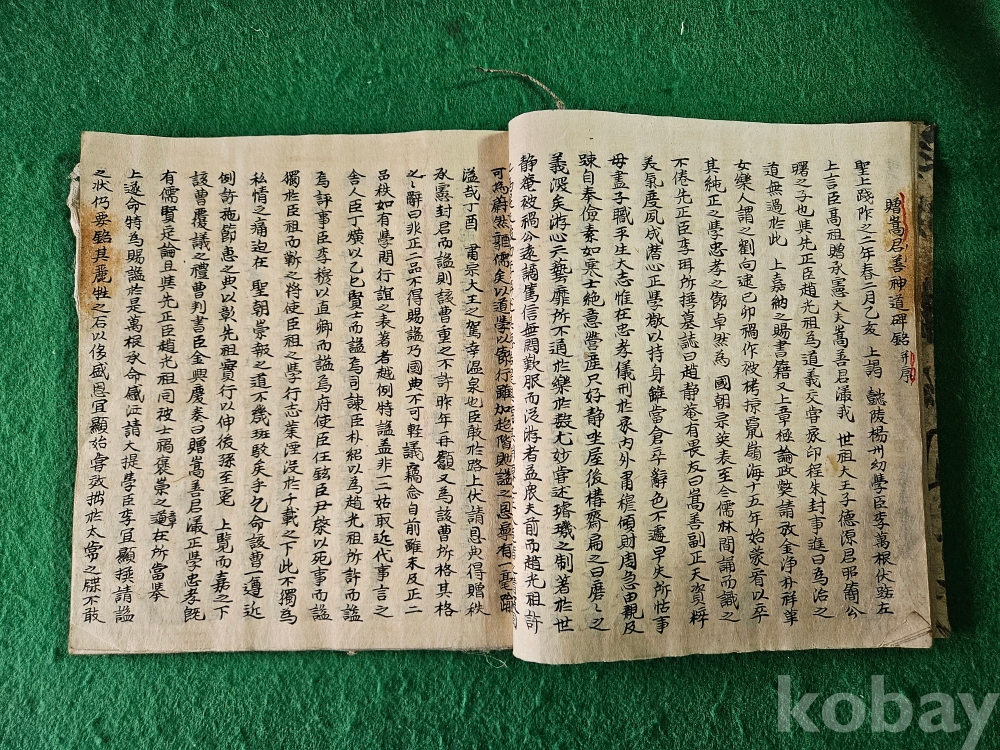 贈嵩善君神道碑銘 并序
聖上踐阼之二年春二月乙亥 上謁 懿陵楊州幼學臣李萬根伏路左
上言臣高祖贈承憲大夫嵩善君灇我 世祖大王子德源君昭簡公
曙之子也與先正臣趙光祖為道義交嘗於印程朱封事進曰為治之
道無過於此 上嘉納之賜書籍又上章極論政獘請放金淨朴祥等
女樂人謂之劉向逮己卯禍作被栲掠竄嶺海十五年始蒙看以卒
其純正之學忠孝之節卓然為 國朝宗英表至今儒林間誦而識之
不倦先正臣李珥所撰墓誌曰趙靜菴有畏友曰嵩善副正天資粹
美氣度夙成潛心正學敬以持身雖當倉卒辭色不遽早失所怙事
毋盡子職平生大志惟在忠孝儀刑於家內外肅穆傾財周急由親及
踈自奉儉素如寒士絶意營產只好靜坐屋後構齋扁之曰磨磨之
義溲矣游心六藝靡所不通於樂於數尤妙嘗述璿璣之制著於世
靜菴被禍公遠謫篤信無悶歎服而從游者益衆夫前而趙光祖許
可為蔚然醇儒矣以道學以儒行雖加超階賜謚之恩
溢哉丁酉 肅宗大王之駕幸溫泉也臣敢於路上伏請恩典得贈秩
承憲封君而謚則該曹重之不許昨年再籲又為該曹所格其格
之之辭曰非正二品不得賜謚乃國典不可輕議竊念自前雖未及正二
品秩如有學問行誼之表著者越例特謚盖非一二姑取近代事言之
舍人臣丁熿以乙巳賢士而謚為司諫臣朴紹以為趙光祖所許而謚
為評事臣李穆以直卿而謚為府使臣任鉉臣尹棨以死事而謚
獨於臣祖而靳之將使臣祖之學行志業湮没於千載之下此不獨為
私情之痛迫在 聖朝崇報之道不幾班駁矣乎乞命該曹一遵近
例許施節惠之典以彰先祖實行以伸後孫至寃 上覽而嘉之下
該曹覆議之禮曹判書臣金興慶奏曰贈嵩善君灇正學忠孝旣
有儒賢定論且與先正臣趙光祖同被士禍褒崇之道在所當擧
上遂命特為賜謚於是萬根承命感泣請大提學臣李宜顯撰請謚
之狀仍要銘其麗牲之石以侈感恩宜顯始嘗芜拙於太常之牒不敢